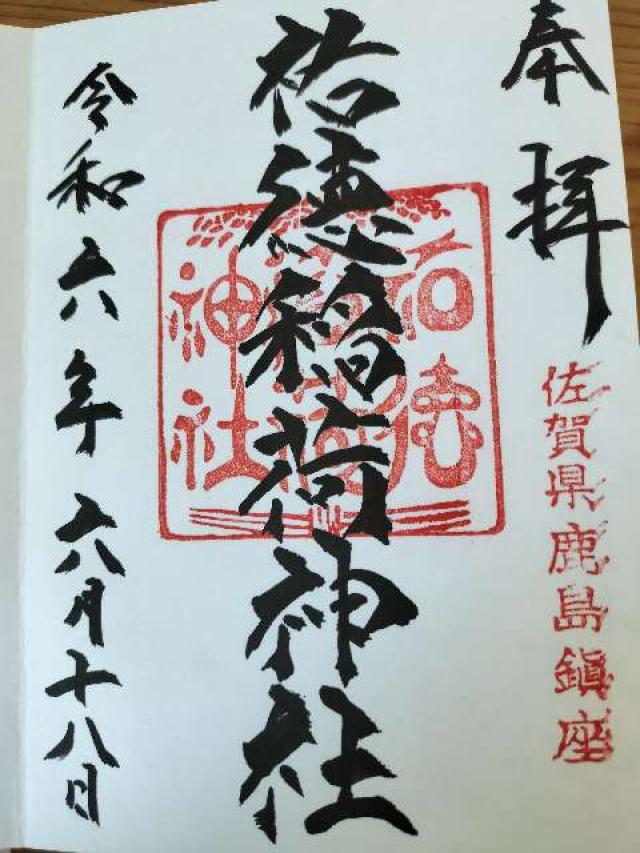 奉拝
佐賀県鹿島鎮座
祐徳稲荷神社
祐徳稲荷神社
令和六年六月十八日